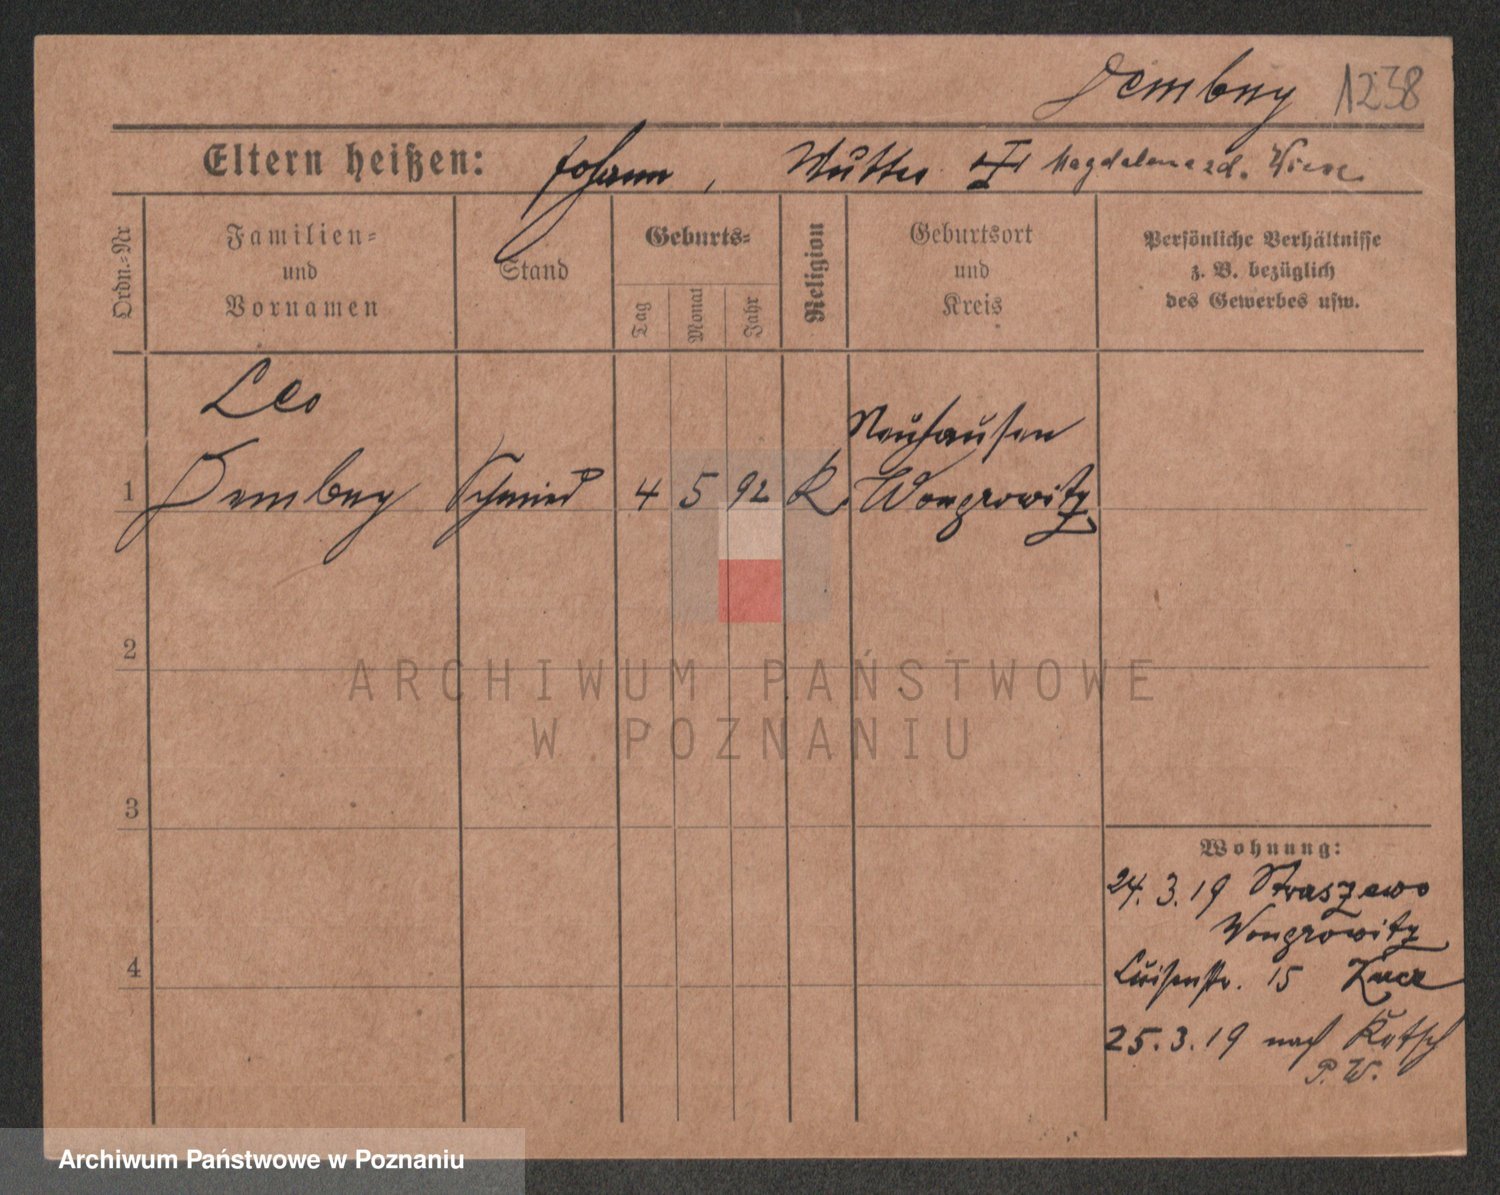 Dembny 1238
Eltern heißen: Johann, Mutter Magdalena
Ordn.-Nr
Familien-
und
Vornamen
Stand
Geburts-
Tag
Monat
Jahr
Religion
Geburtsort
und
Kreis
Persönliche Verhältnisse
z. B. bezüglich
des Gewerbes usw.
Leo
Neuhausen
1 Dembny Schmied 4 5 92 K. Wongrowitz
2
ARCHIWUM PAŃSTWOWE
W POZNANIU
3
4
Wohnung:
24.3.19 Straszewo
Wongrowitz
Luisenstr. 15
25.3.19 nach
P. W.
Archiwum Państwowe w Poznaniu